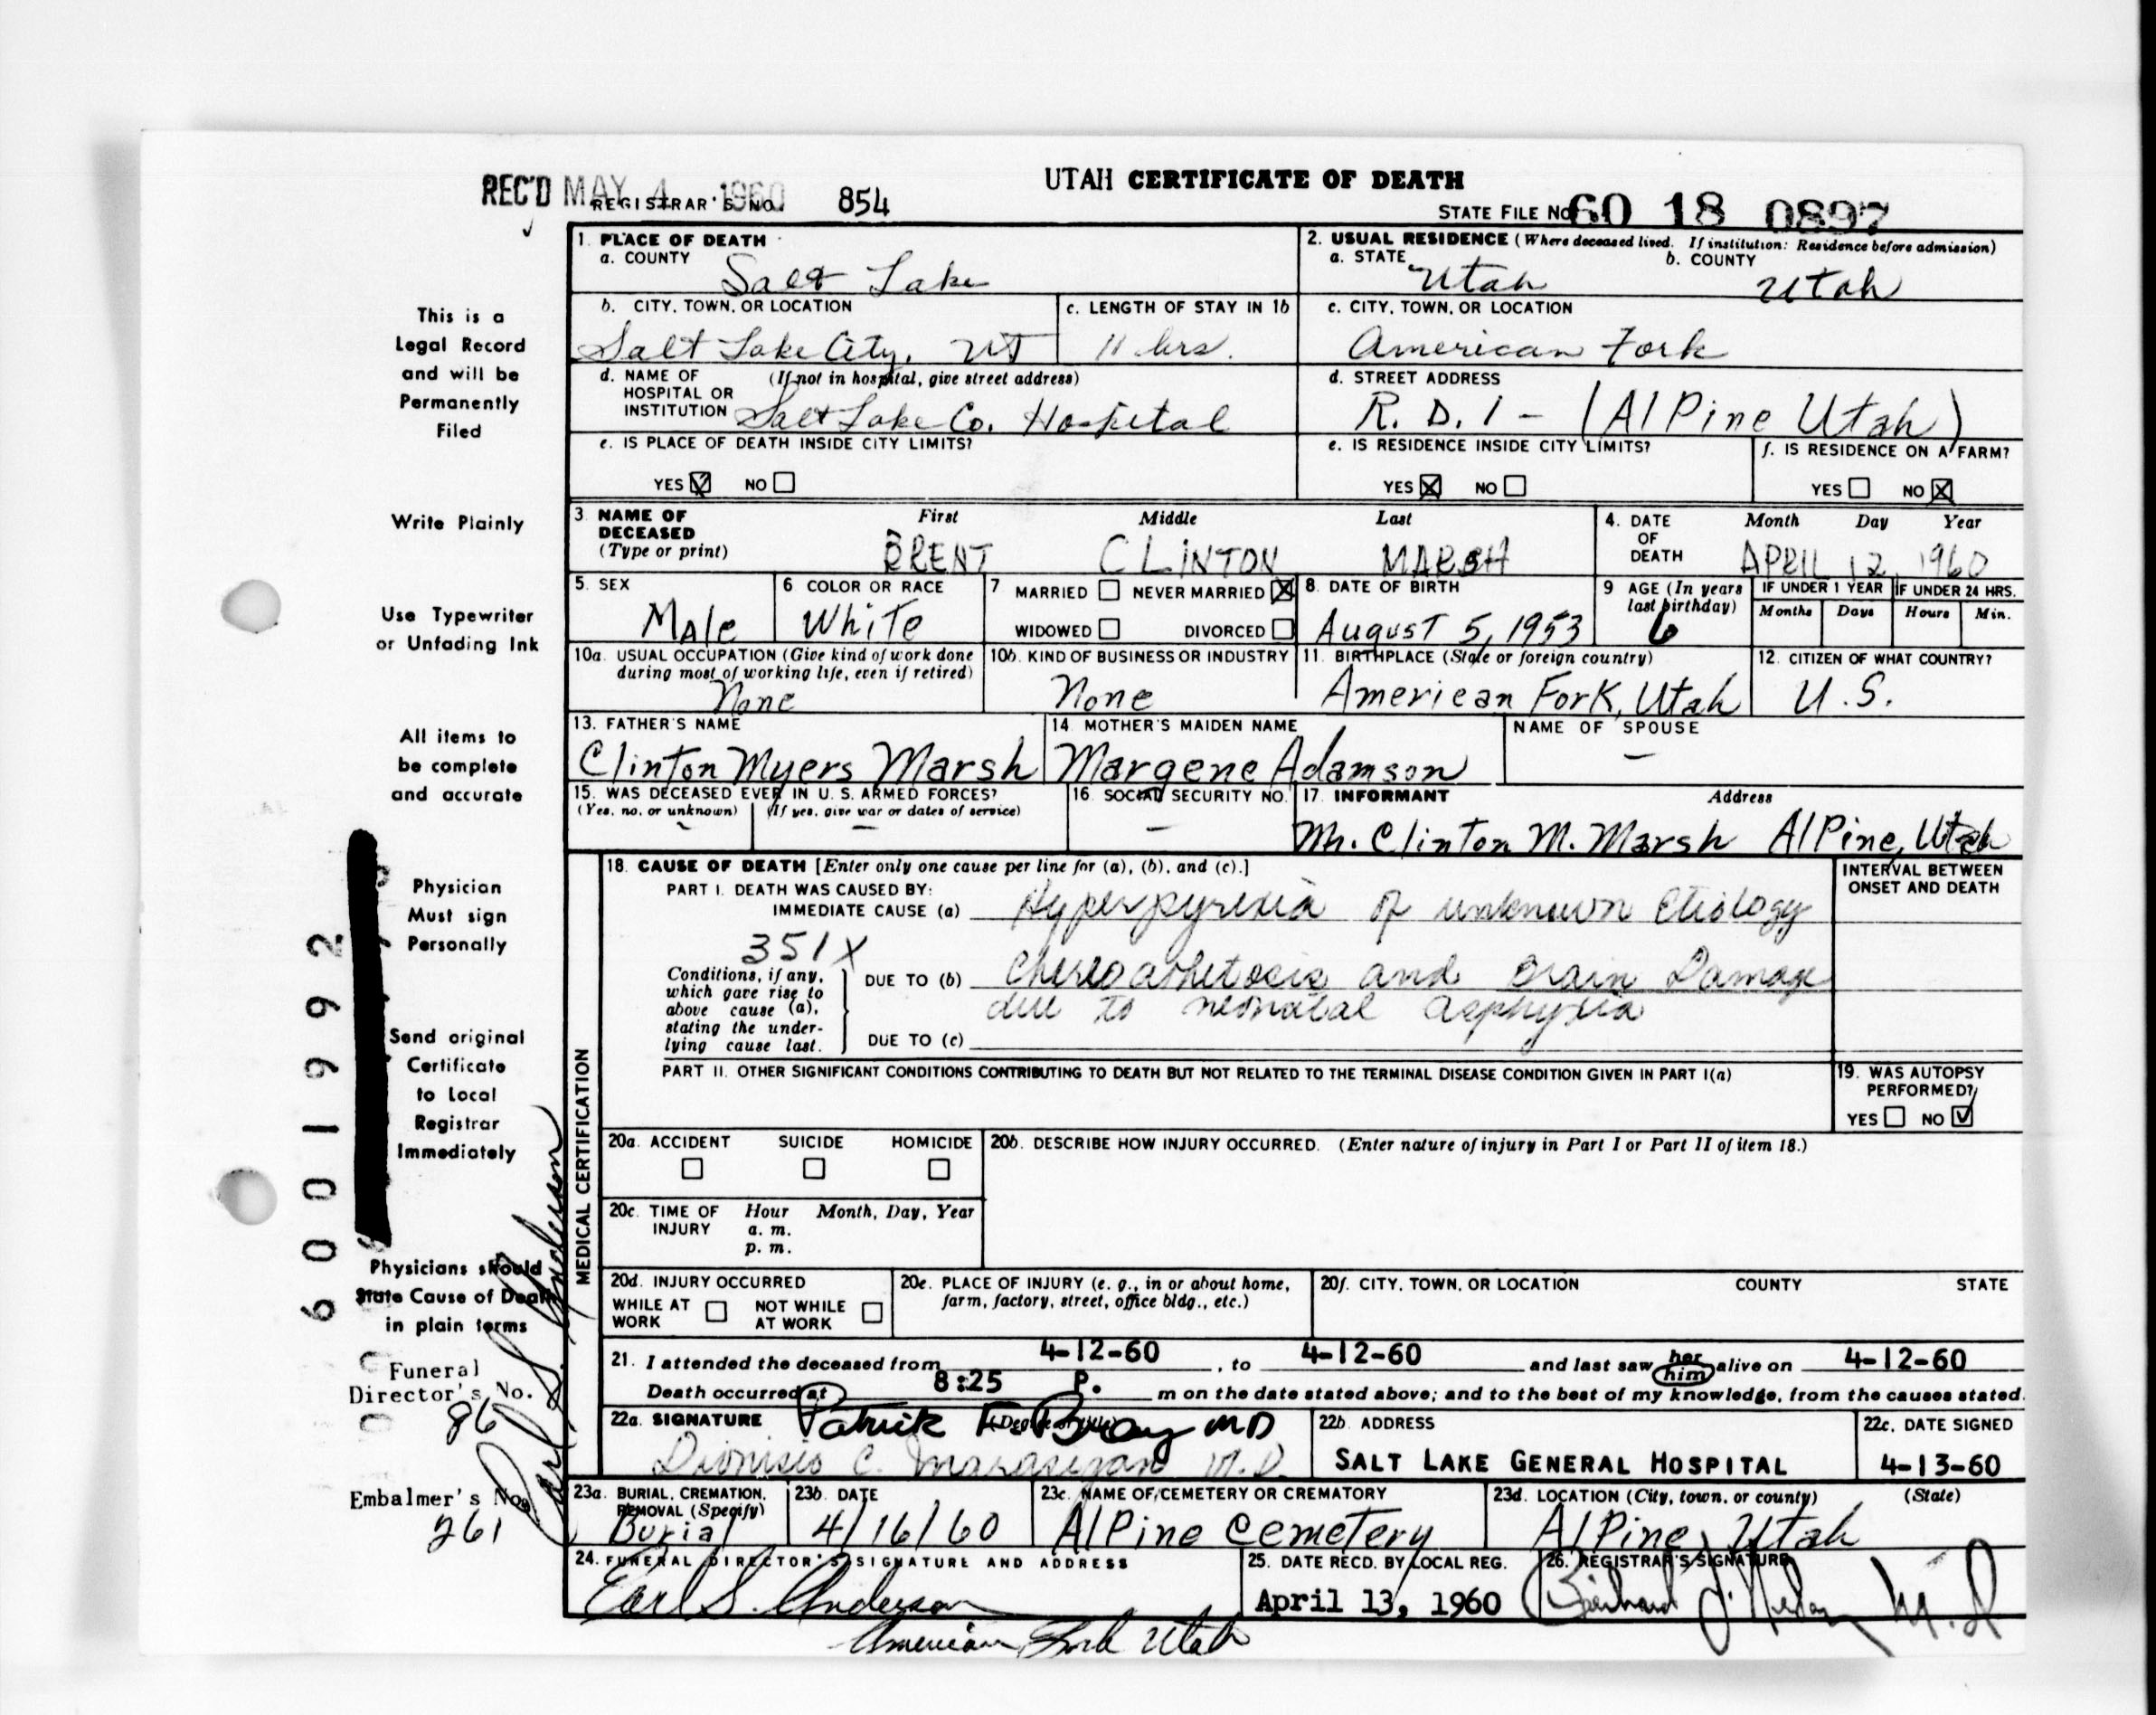 UTAH CERTIFICATE OF DEATH
REC'D MAY 4 1960
REGISTRAR'S NO. 854
STATE FILE NO. 60 18 0897
This is a
Legal Record
and will be
Permanently
Filed
Write Plainly
Use Typewriter
or Unfading Ink
All items to
be complete
and accurate
Physician
Must sign
Personally
Send original
Certificate
to Local
Registrar
Immediately
Physicians should
State Cause of Death
in plain terms
Funeral
Director's No.
86
Embalmer's No.
261
Earl S. Anderson
6001992
1. PLACE OF DEATH
a. COUNTY Salt Lake
2. USUAL RESIDENCE (Where deceased lived. If institution: Residence before admission)
a. STATE Utah b. COUNTY Utah
b. CITY, TOWN, OR LOCATION Salt Lake City, UT
c. LENGTH OF STAY IN 1b 11 hrs.
c. CITY, TOWN, OR LOCATION American Fork
d. NAME OF HOSPITAL OR INSTITUTION (If not in hospital, give street address) Salt Lake Co. Hospital
d. STREET ADDRESS R. D. 1 - (AlPine Utah)
e. IS PLACE OF DEATH INSIDE CITY LIMITS?
YES NO
e. IS RESIDENCE INSIDE CITY LIMITS?
YES NO
f. IS RESIDENCE ON A FARM?
YES NO
3. NAME OF DECEASED (Type or print)
First Middle Last
BRENT CLINTON MARSH
4. DATE OF DEATH Month Day Year
APRIL 12, 1960
5. SEX Male
6 COLOR OR RACE White
7 MARRIED NEVER MARRIED
WIDOWED DIVORCED
8. DATE OF BIRTH August 5, 1953
9 AGE (In years last birthday) 6
IF UNDER 1 YEAR Months Days
IF UNDER 24 HRS. Hours Min.
10a. USUAL OCCUPATION (Give kind of work done during most of working life, even if retired) None
10b. KIND OF BUSINESS OR INDUSTRY None
11. BIRTHPLACE (State or foreign country) American Fork, Utah
12. CITIZEN OF WHAT COUNTRY? U.S.
13. FATHER'S NAME Clinton Myers Marsh
14 MOTHER'S MAIDEN NAME Margene Adamson
NAME OF SPOUSE —
15. WAS DECEASED EVER IN U. S. ARMED FORCES?
(Yes, no, or unknown) (If yes, give war or dates of service)
16. SOCIAL SECURITY NO. —
17. INFORMANT Address
Mr. Clinton M. Marsh AlPine, Utah
MEDICAL CERTIFICATION
18. CAUSE OF DEATH [Enter only one cause per line for (a), (b), and (c).]
PART I. DEATH WAS CAUSED BY:
IMMEDIATE CAUSE (a) Hyperpyrexia of unknown Etiology
351X
Conditions, if any, which gave rise to above cause (a), stating the underlying cause last.
DUE TO (b) Choreoathetosis and Brain Damage
due to neonatal asphyxia
DUE TO (c)
INTERVAL BETWEEN ONSET AND DEATH
PART II. OTHER SIGNIFICANT CONDITIONS CONTRIBUTING TO DEATH BUT NOT RELATED TO THE TERMINAL DISEASE CONDITION GIVEN IN PART I(a)
19. WAS AUTOPSY PERFORMED?
YES NO
20a. ACCIDENT SUICIDE HOMICIDE
20b. DESCRIBE HOW INJURY OCCURRED. (Enter nature of injury in Part I or Part II of item 18.)
20c. TIME OF INJURY Hour a. m. p. m. Month, Day, Year
20d. INJURY OCCURRED
WHILE AT WORK NOT WHILE AT WORK
20e. PLACE OF INJURY (e. g., in or about home, farm, factory, street, office bldg., etc.)
20f. CITY, TOWN, OR LOCATION COUNTY STATE
21. I attended the deceased from 4-12-60, to 4-12-60 and last saw her him alive on 4-12-60
Death occurred at 8:25 P. m on the date stated above; and to the best of my knowledge, from the causes stated.
22a. SIGNATURE Patrick F. Bray MD
Dionisio C. M.D.
22b. ADDRESS SALT LAKE GENERAL HOSPITAL
22c. DATE SIGNED 4-13-60
23a. BURIAL, CREMATION, REMOVAL (Specify) Burial
23b. DATE 4/16/60
23c. NAME OF CEMETERY OR CREMATORY AlPine Cemetery
23d. LOCATION (City, town, or county) (State)
AlPine, Utah
24. FUNERAL DIRECTOR'S SIGNATURE AND ADDRESS
Earl S. Anderson
American Fork Utah
25. DATE RECD. BY LOCAL REG. April 13, 1960
26. REGISTRAR'S SIGNATURE M.D.